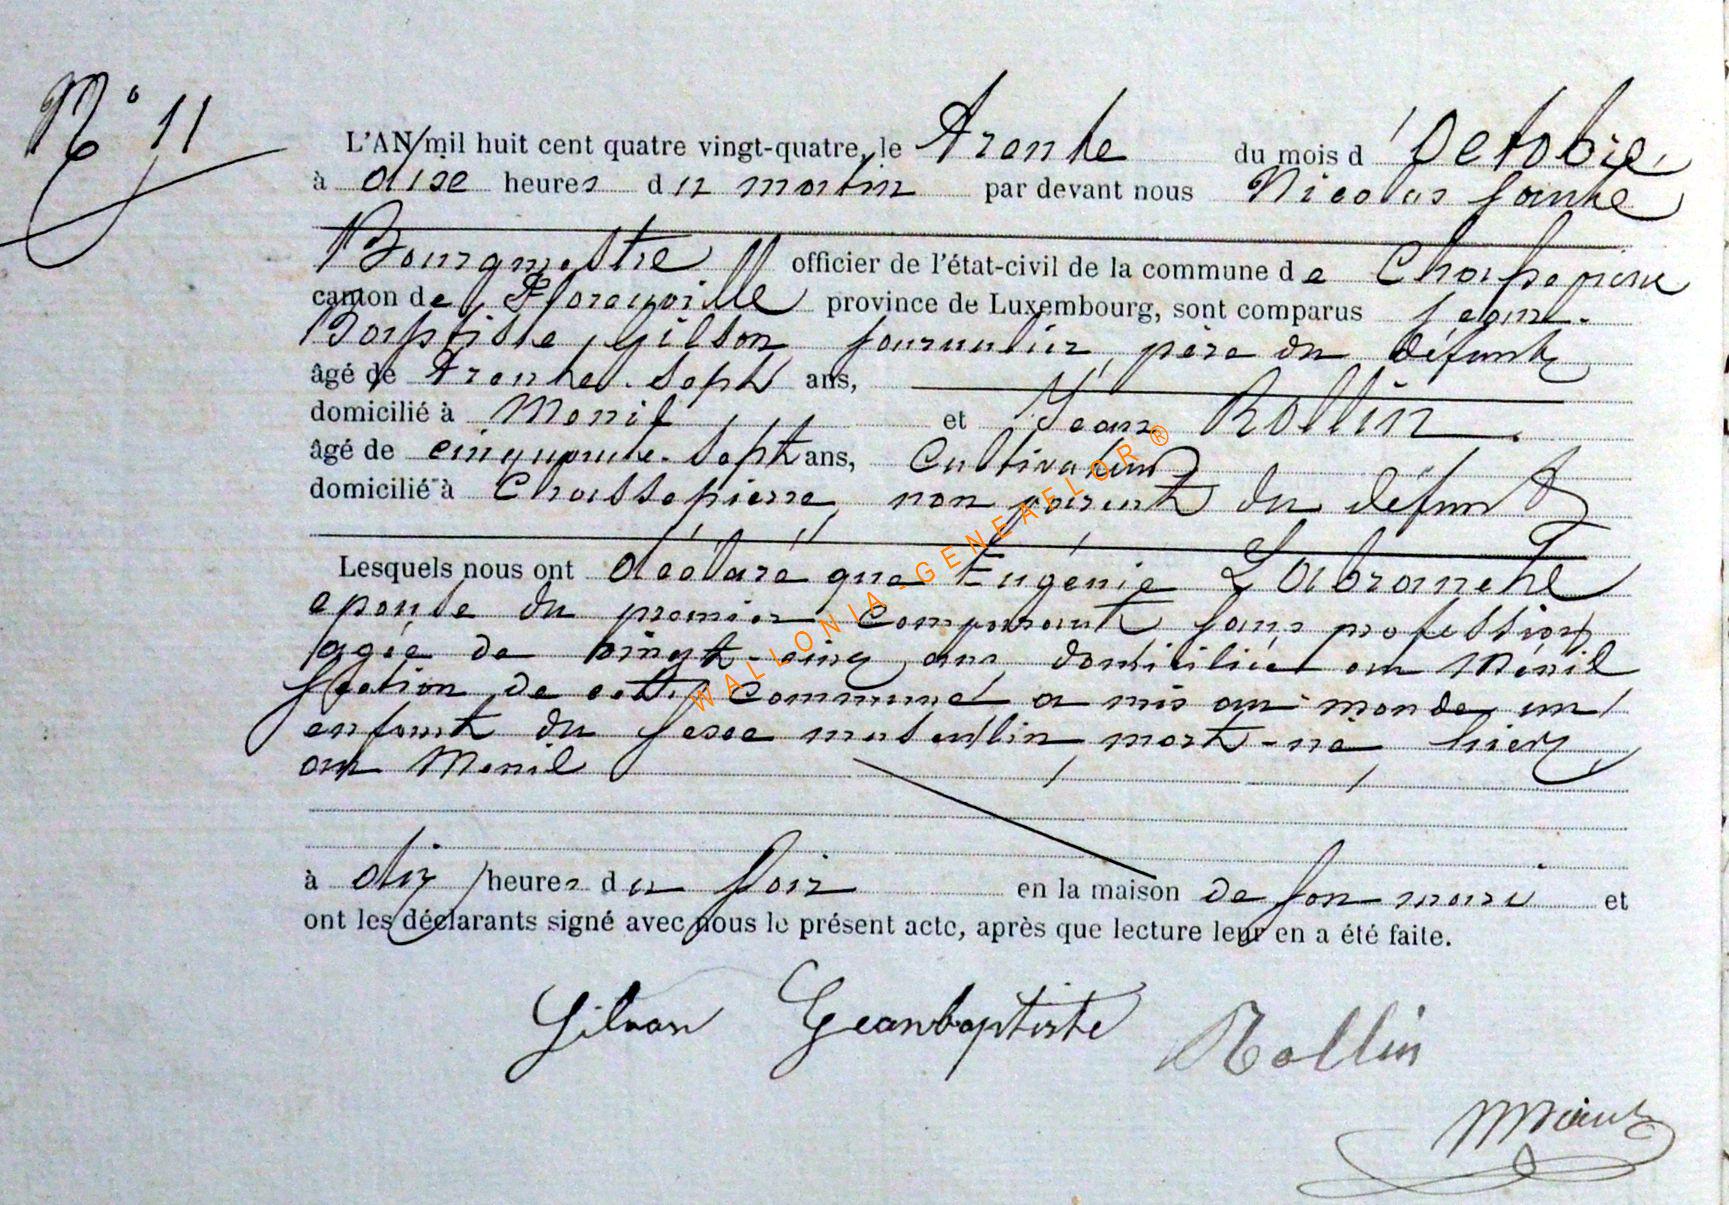 N° 11
L'AN mil huit cent quatre vingt-quatre, le Trente du mois d'Octobre
à dise heures du matin par devant nous Nicolas
Bourgmestre officier de l'état-civil de la commune de Chassepierre
canton de Florenville province de Luxembourg, sont comparus Jean-
Baptiste Gilson, journalier, père du défunt
âgé de Trente-sept ans,
domicilié à Menil et Jean Rollin
âgé de cinquante-sept ans, Cultivateur
domicilié à Chassepierre, non parent du défunt
Lesquels nous ont déclaré que Eugénie Labranche
épouse du premier comparant sans profession
agée de vingt-cinq ans, domiciliée au Ménil
section de cette commune a mis au monde un
enfant du sexe masculin mort-né hier
au Menil
à dix heures du soir en la maison de son mari et
ont les déclarants signé avec nous le présent acte, après que lecture leur en a été faite.
Gilson Jeanbaptiste Rollin
WALLONIA-GENEAFLOR ®